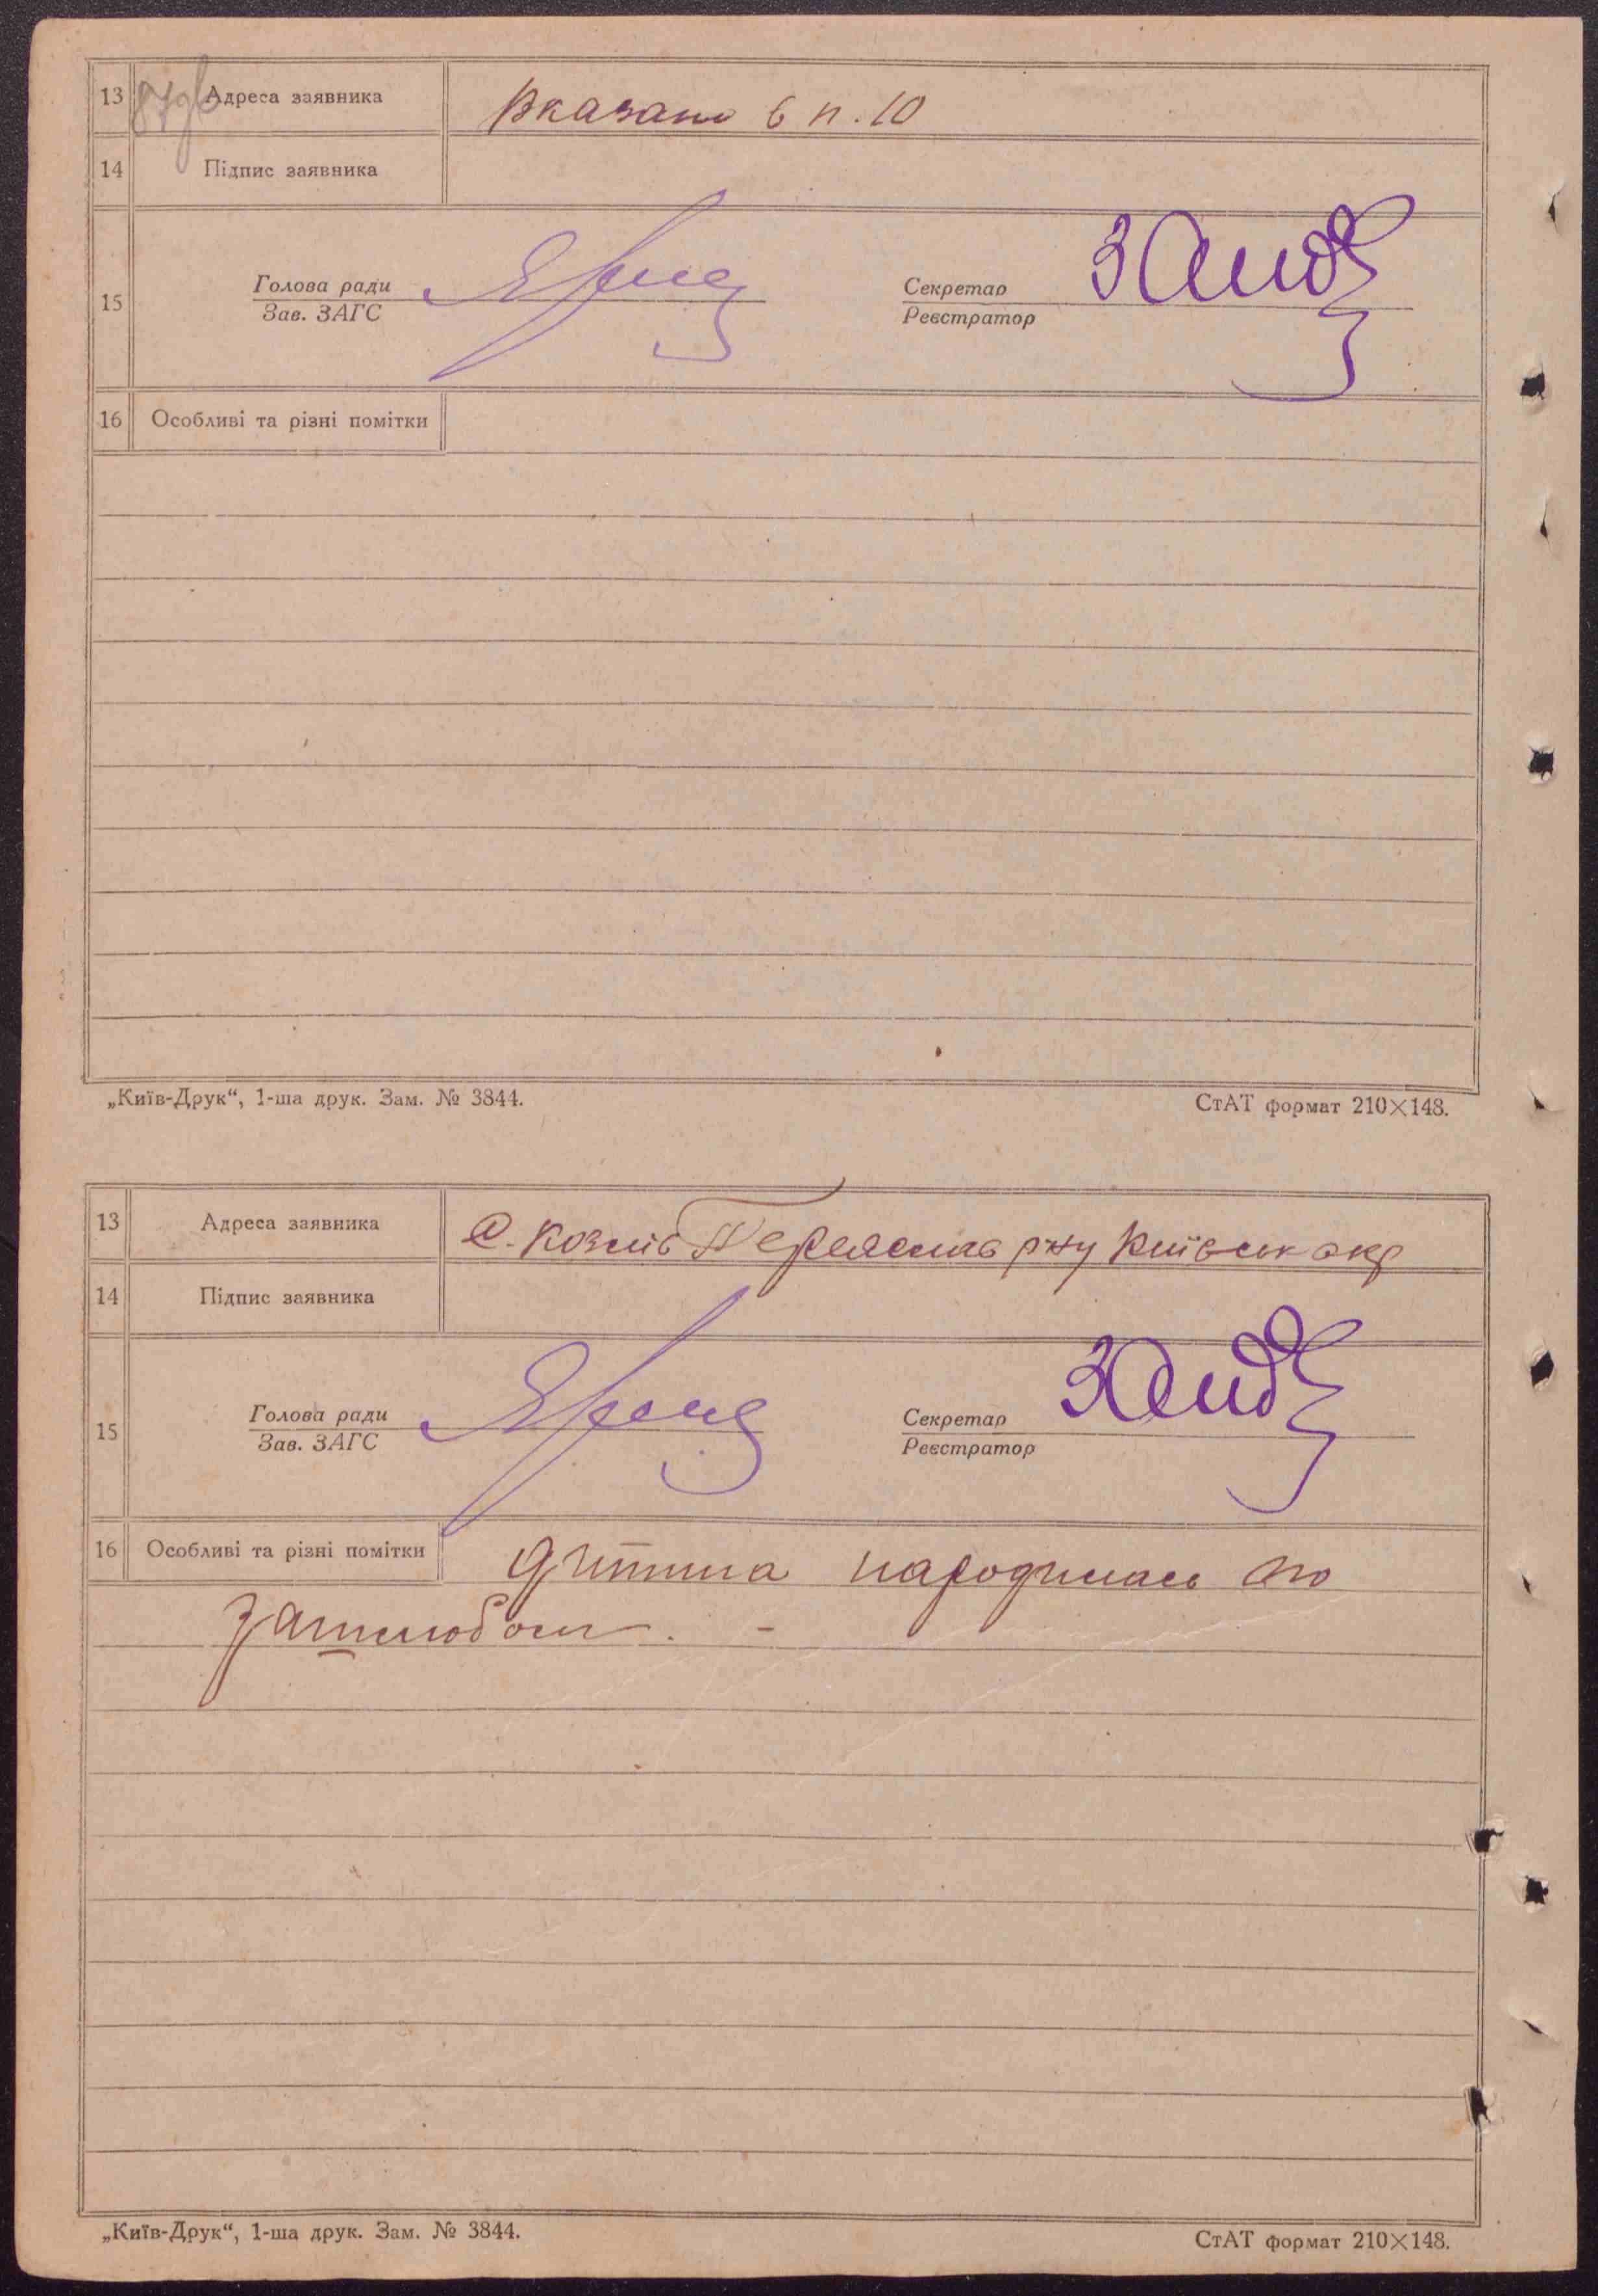 87зв
13 Адреса заявника Вказано в п. 10
14 Підпис заявника
15 Голова ради Секретар
Зав. ЗАГС Реєстратор
16 Особливі та різні помітки
„Київ-Друк“, 1-ша друк. Зам. № 3844. СтАТ формат 210×148.
13 Адреса заявника С. Козлів Переяслав р-ну Київськ окр
14 Підпис заявника
15 Голова ради Секретар
Зав. ЗАГС Реєстратор
16 Особливі та різні помітки Дитина народилась по
зашлюбом. -
„Київ-Друк“, 1-ша друк. Зам. № 3844. СтАТ формат 210×148.